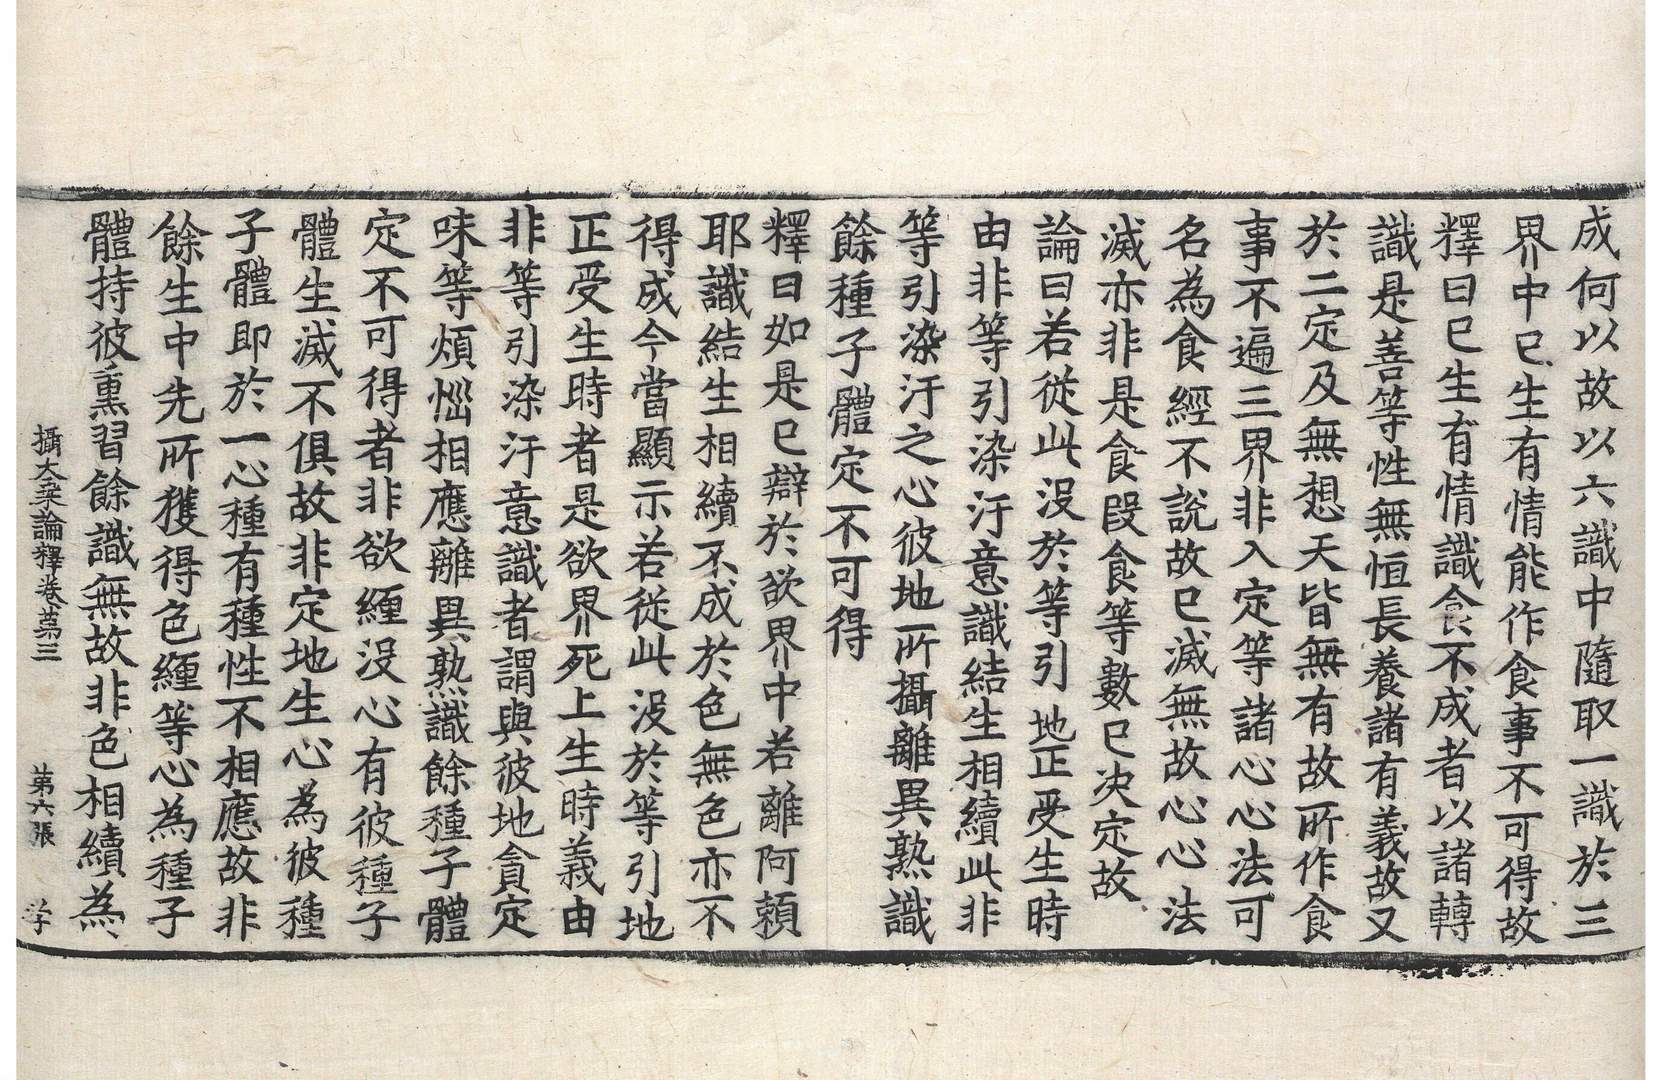 成何以故以六識中隨取一識於三
界中已生有情能作食事不可得故
釋曰已生有情識食不成者以諸轉
識是善等性無恒長養諸有義故又
於二定及無想天皆無有故所作食
事不遍三界非入定等諸心心法可
名為食經不說故已滅無故心心法
滅亦非是食段食等數已決定故
論曰若從此没於等引地正受生時
由非等引染汙意識結生相續此非
等引染汙之心彼地所攝離異熟識
餘種子體定不可得
釋曰如是已辯於欲界中若離阿賴
耶識結生相續不成於色無色亦不
得成今當顯示若從此没於等引地
正受生時者是欲界死上生時義由
非等引染汙意識者謂與彼地貪定
味等煩惱相應離異熟識餘種子體
定不可得者非欲纏没心有彼種子
體生滅不俱故非定地生心為彼種
子體即於一心種有種性不相應故非
餘生中先所獲得色纏等心為種子
體持彼熏習餘識無故非色相續為
攝大乘論釋卷第三 第六張 学